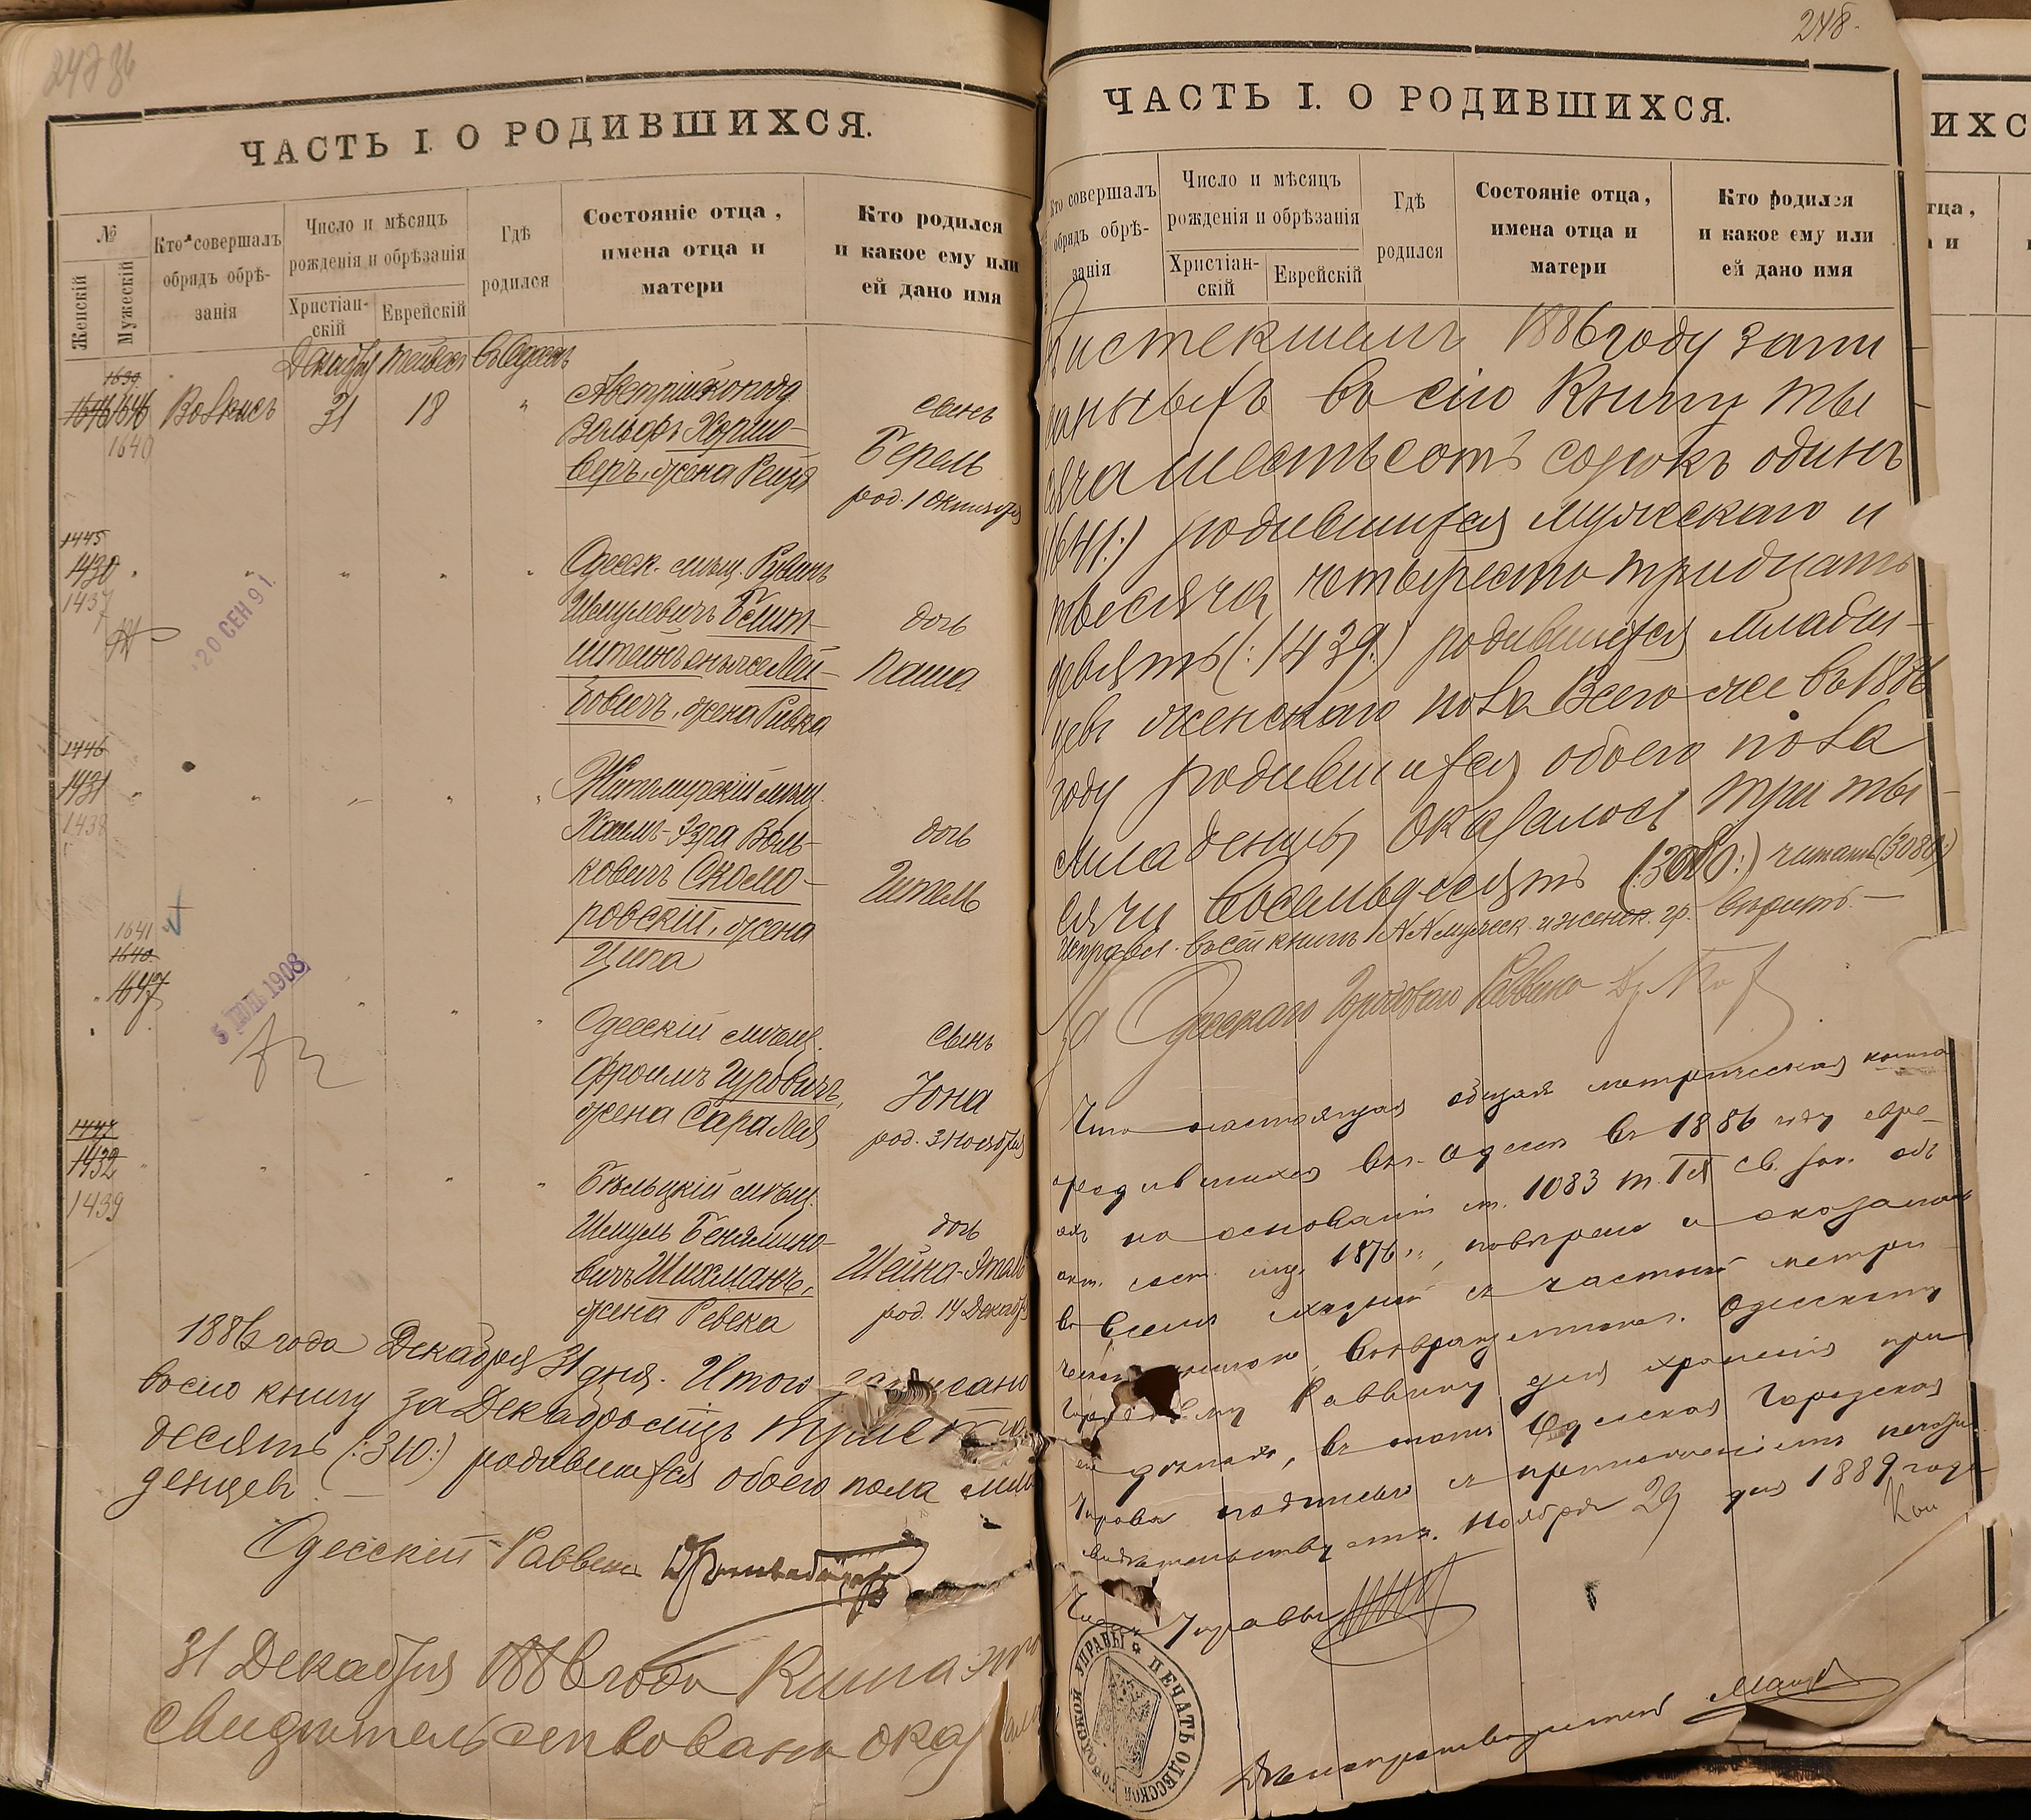 247
ЧАСТЬ I. О РОДИВШИХСЯ.
№
Женскій
Мужескій
Кто совершалъ
обрядъ обрѣ-
занія
Число и мѣсяцъ
рожденія и обрѣзанія
Христіан-
скій
Еврейскій
Гдѣ
родился
Состояніе отца,
имена отца и
матери
Кто родился
и какое ему или
ей дано имя
Декабря Тейвесъ въ Одессѣ
1639
1646
1640
31
18
Австрійскопод
Вольфъ
беръ, жена Рейзя
сынъ
Берель
род. 1 Октября
1445
1430
1437
20 СЕН 91
Одесск. мѣщ. Рувинъ
Шмулевичъ
штейнъ онъ же Лей-
бовичъ, жена Ривка
дочь
Паша
1446
1431
1438
Житомирскій мѣщ.
Хаимъ-Эзра Воль-
ковичъ Скомо-
ровскій, жена
Ципа
дочь
Гитель
1641
1640
1647
5 1908
Одесскій мѣщ.
Фроимъ Гуровичъ,
жена Сара Лея
сынъ
Іона
род. 3 Ноября
1447
1432
1439
Бѣльцкій мѣщ.
Шмуль Беняmино-
вичъ Шихманъ,
жена Ревека
дочь
Шейна-Этель
род. 14 Декабр
1886 года Декабря 31 дня. Итого записано
въ сію книгу за Декабрь мѣсцъ триста
десять (:310:) родившихся обоего пола мла
денцевъ
Одесскій Раввинъ
31 Декабря 1886 года Книга эта
свидѣтельствована
248.
ЧАСТЬ I. О РОДИВШИХСЯ.
Кто совершалъ
обрядъ обрѣ-
занія
Число и мѣсяцъ
рожденія и обрѣзанія
Христіан-
скій
Еврейскій
Гдѣ
родился
Состояніе отца,
имена отца и
матери
Кто родился
и какое ему или
ей дано имя
истекшемъ 1886 году запи
санныхъ въ сію книгу ты
сяча шестьсотъ сорокъ одинъ
1641:) родившихся мужескаго и
тысяча четыреста тридцать
девять (:1439:) родившихся младен-
цевъ женскаго пола Всего же въ 1886
году родившихся обоего пола
младенцевъ оказалось три ты
сячи восемьдесятъ (:3080:) читать (3080:)
Исправл. въ сей книгѣ №№ мужеск. и женск. гр. вѣрить.
За Одесскаго Городового Раввина
Что настоящая общая метрическая книга
родившихся въ г. Одессѣ въ 1886 году евре-
евъ на основаніи ст. 1083 т. IX св. зак. объ
сост. изд. 1876 г., повѣрена и оказалась
во всемъ сходной съ частной метри
ческой книгою, возвращается Одесскому
Городскому Раввину для храненія при
дѣлахъ, въ чемъ Одесская Городская
Управа подписью и приложеніемъ печати
свидѣтельствуетъ. Ноября 29 дня 1889 года
Управы
ПЕЧАТЬ ОДЕССКОЙ ГОРОДСКОЙ УПРАВЫ
Дѣлопроизводитель
ИХС